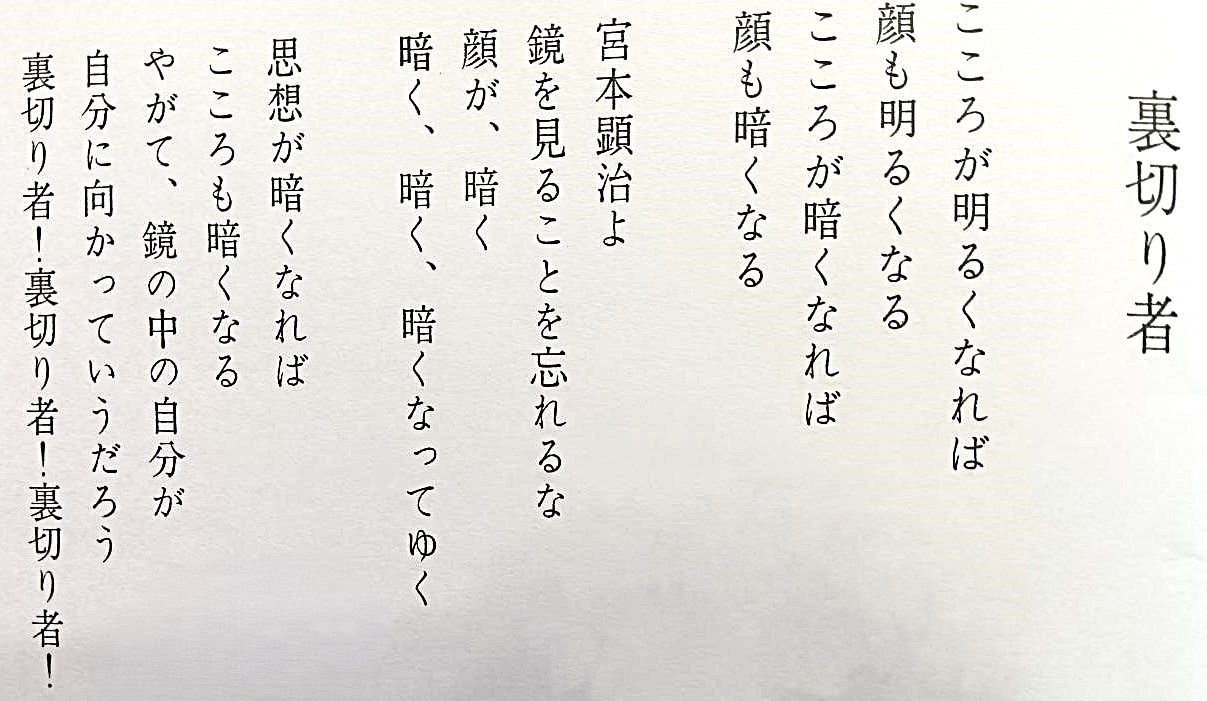 裏切り者
こころが明るくなれば
顔も明るくなる
こころが暗くなれば
顔も暗くなる
宮本顕治よ
鏡を見ることを忘れるな
顔が、暗く
暗く、暗く、暗くなってゆく
思想が暗くなれば
こころも暗くなる
やがて、鏡の中の自分が
自分に向かっていうだろう
裏切り者！裏切り者！裏切り者！